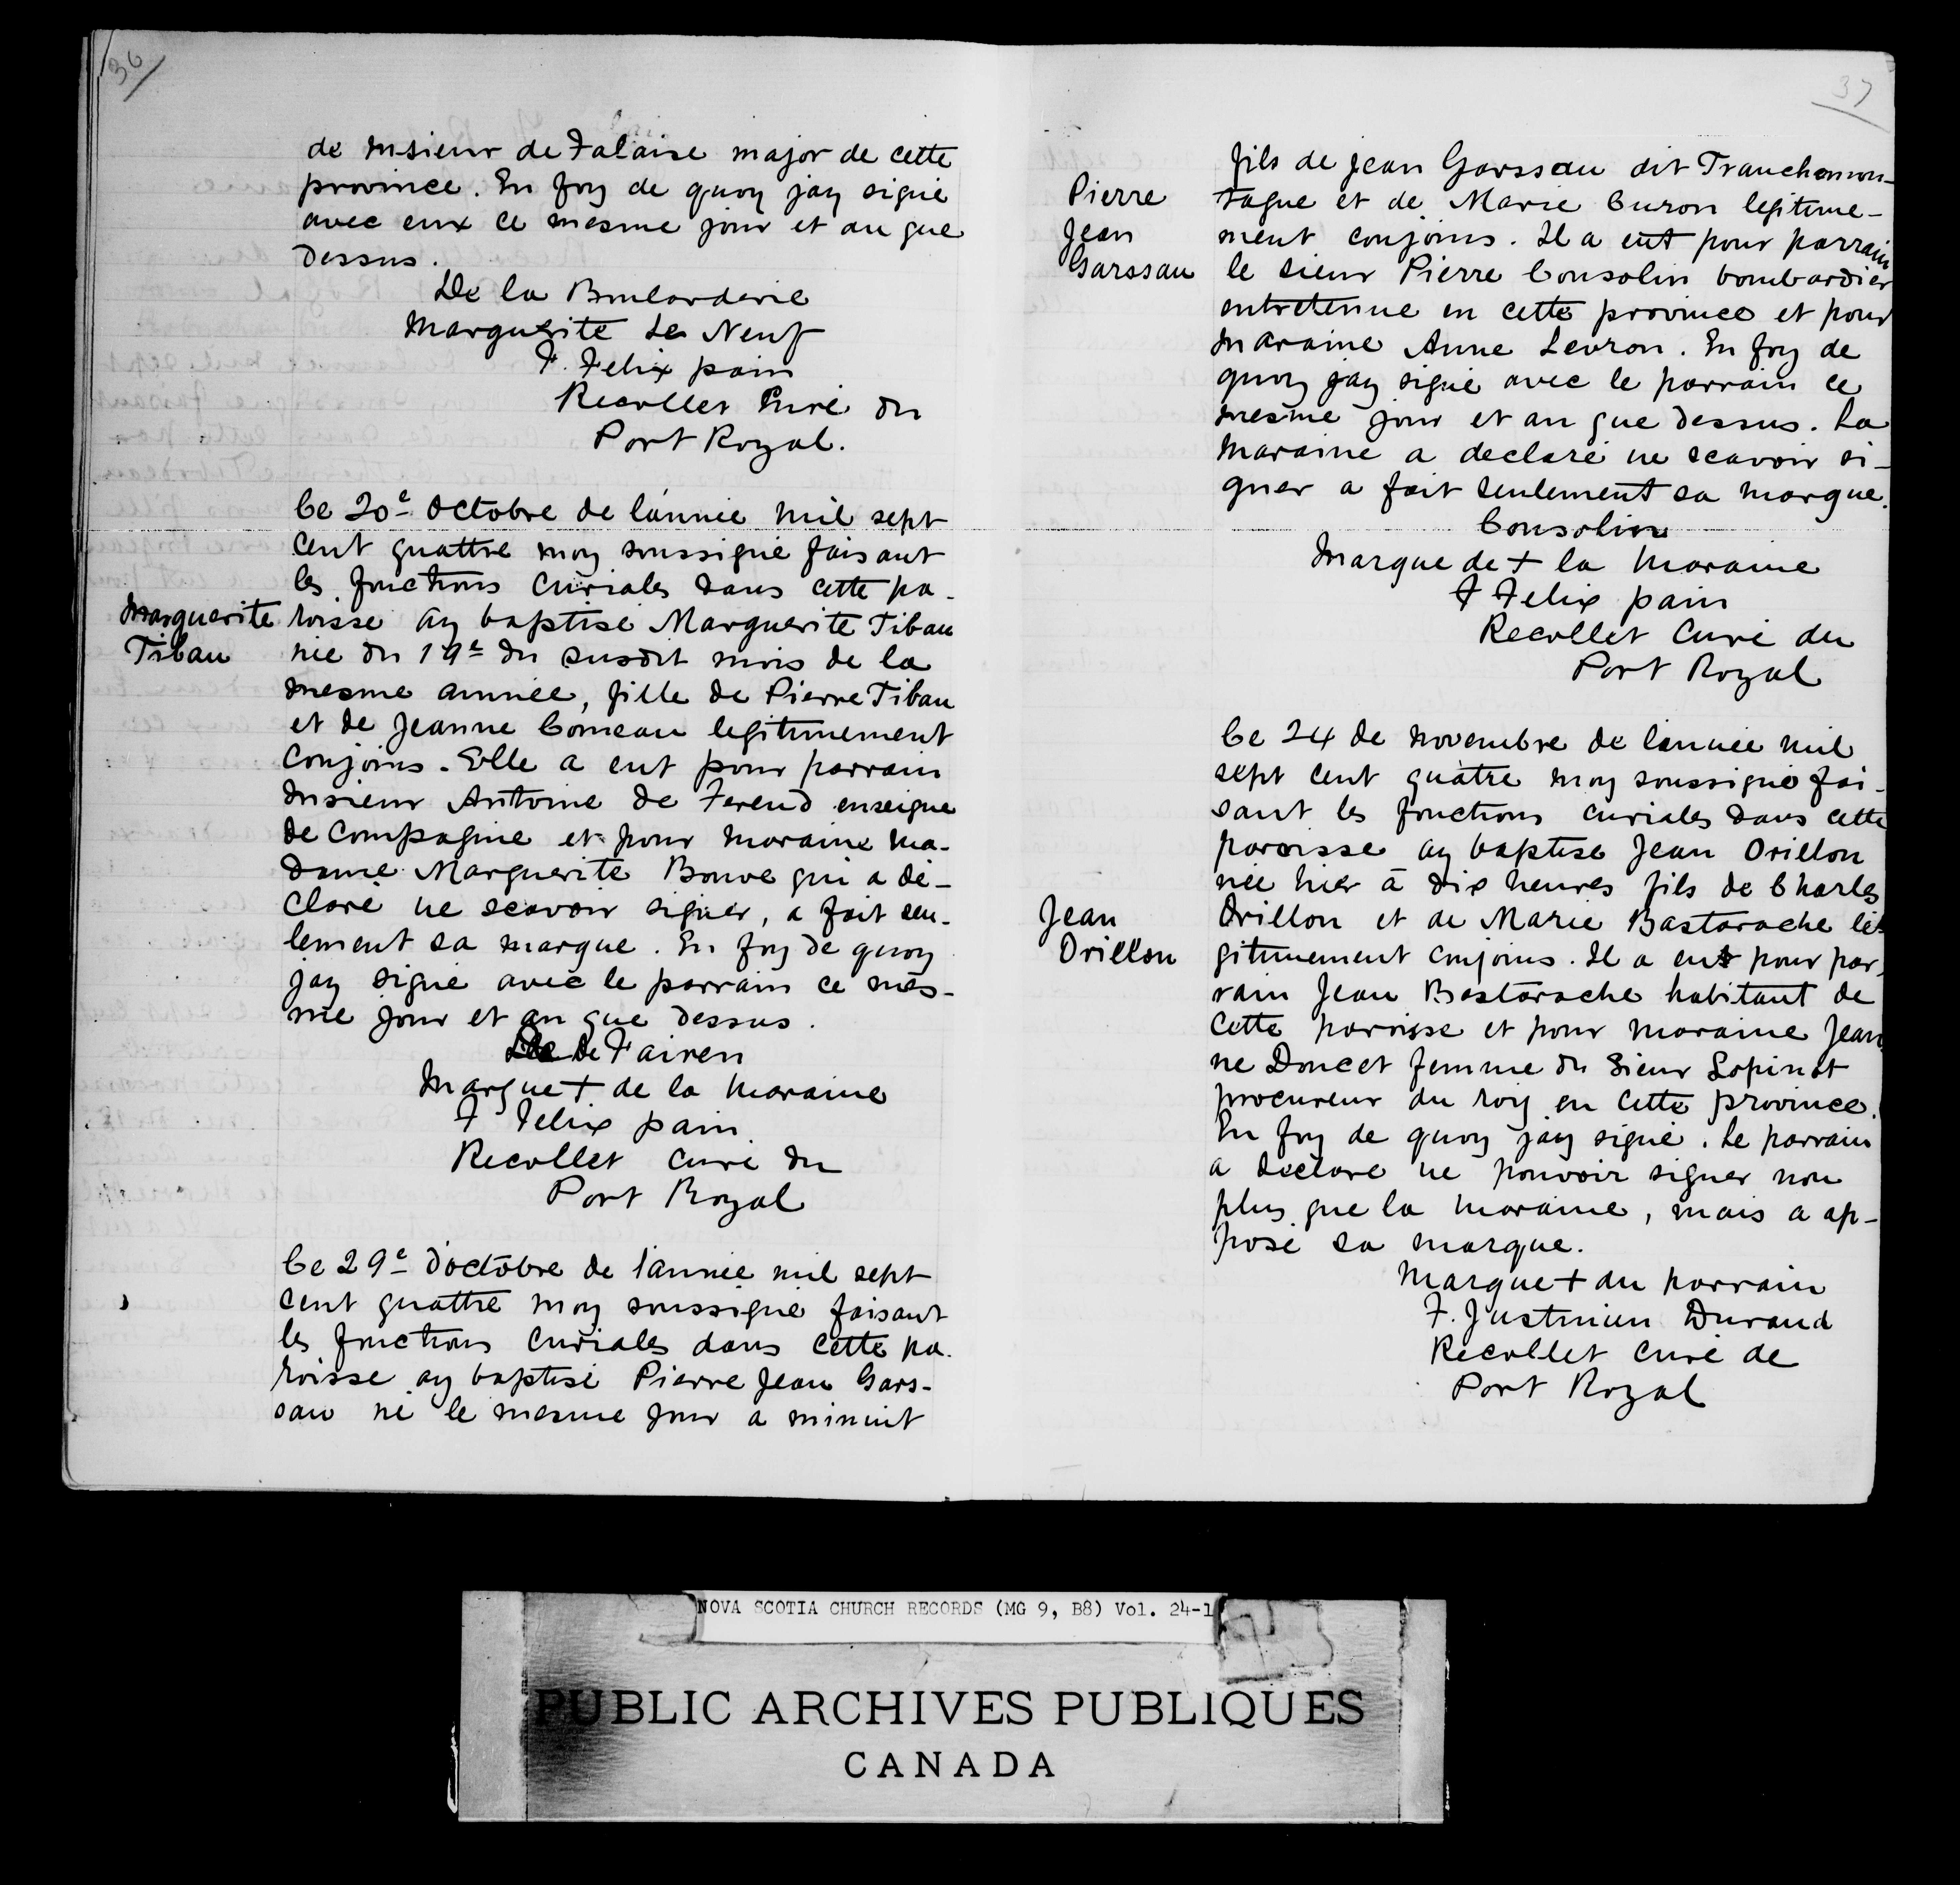 36
de Msieur de Falaise major de cette
province. En foy de quoy jay signé
avec eux ce mesme jour et an que
dessus.
De la Boularderie
Marguerite Le Neuf
F. Felix pain
Recollet Curé du
Port Royal.
Ce 20e Octobre de l'année mil sept
cent quattre moy soussigné faisant
les fonctions curiales dans cette pa-
Marguerite
Tibau
roisse ay baptisé Marguerite Tibau
née du 19e du susdit mois de la
mesme année, fille de Pierre Tibau
et de Jeanne Comeau legitimement
conjoins. Elle a eut pour parrain
Msieur Antoine de Fereud enseigne
de Compagnie et pour maraine ma-
dame Marguerite Bouve qui a dé-
claré ne scavoir signer, a fait seu-
lement sa marque. En foy de quoy
jay signé avec le parrain ce mes-
me jour et an que dessus.
De Fairen
Marque + de la maraine
F Felix pain
Recollet curé du
Port Royal
Ce 29e d'octobre de l'année mil sept
cent quattre moy soussigné faisant
les fonctions curiales dans cette pa-
roisse ay baptisé Pierre Jean Gars-
sau né le mesme jour a minuit
37
Pierre
Jean
Garssau
fils de jean Garssau dit Tranchemon-
tagne et de Marie Curon legitime-
ment conjoins. Il a eut pour parrain
le sieur Pierre Consolin bombardier
entretenue en cette province et pour
maraine Anne Levron. En foy de
quoy jay signé avec le parrain ce
mesme jour et an que dessus. La
maraine a declaré ne scavoir si-
gner a fait seulement sa marque.
Consolin
Marque de + la maraine
F Felix pain
Recollet Curé du
Port Royal
Ce 24 de novembre de l'année mil
sept cent quàtre moy soussigné fai-
sant les fonctions curiales dans cette
paroisse ay baptisé Jean Orillon
née hier à dix heures fils de Charles
Jean
Orillon
Orillon et de Marie Bastarache lé-
gitimement conjoins. Il a eut pour par-
rain Jean Bastarache habitant de
cette paroisse et pour maraine Jean-
ne Doucet femme du Sieur Lopinot
procureur du roy en cette province.
En foy de quoy jay signé. Le parrain
a declaré ne pouvoir signer non
plus que la maraine, mais a ap-
posé sa marque.
Marque + du parrain
F. Justinien Durand
Recollet curé de
Port Royal
NOVA SCOTIA CHURCH RECORDS (MG 9, B8) Vol. 24-1
PUBLIC ARCHIVES PUBLIQUES
CANADA